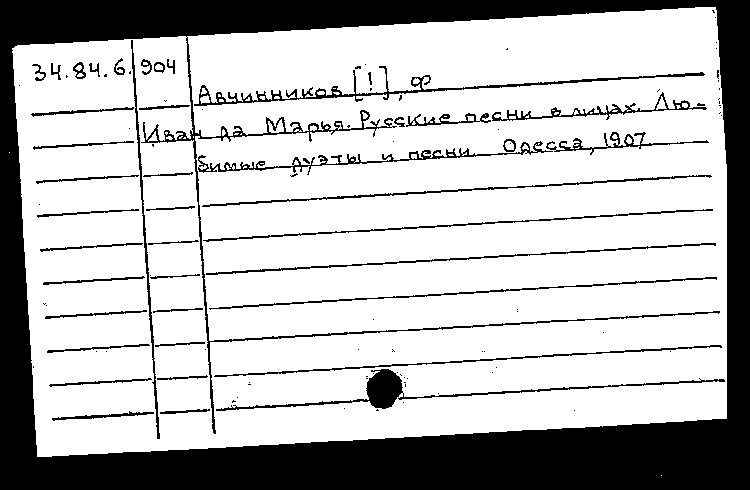 34.84.6. 904
Авчинников [!], Ф
Иван да Марья. Русские песни в лицах. Лю-
бимые дуэты и песни Одесса, 1907